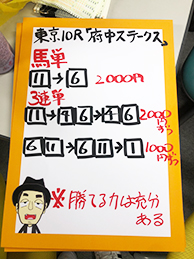 東京10R「府中ステークス」
馬単
11→6 2000円
3連単
11→4 6→4 6 2000円ずつ
6 11→6 11→1 1000円ずつ
※勝てる力は充分
ある